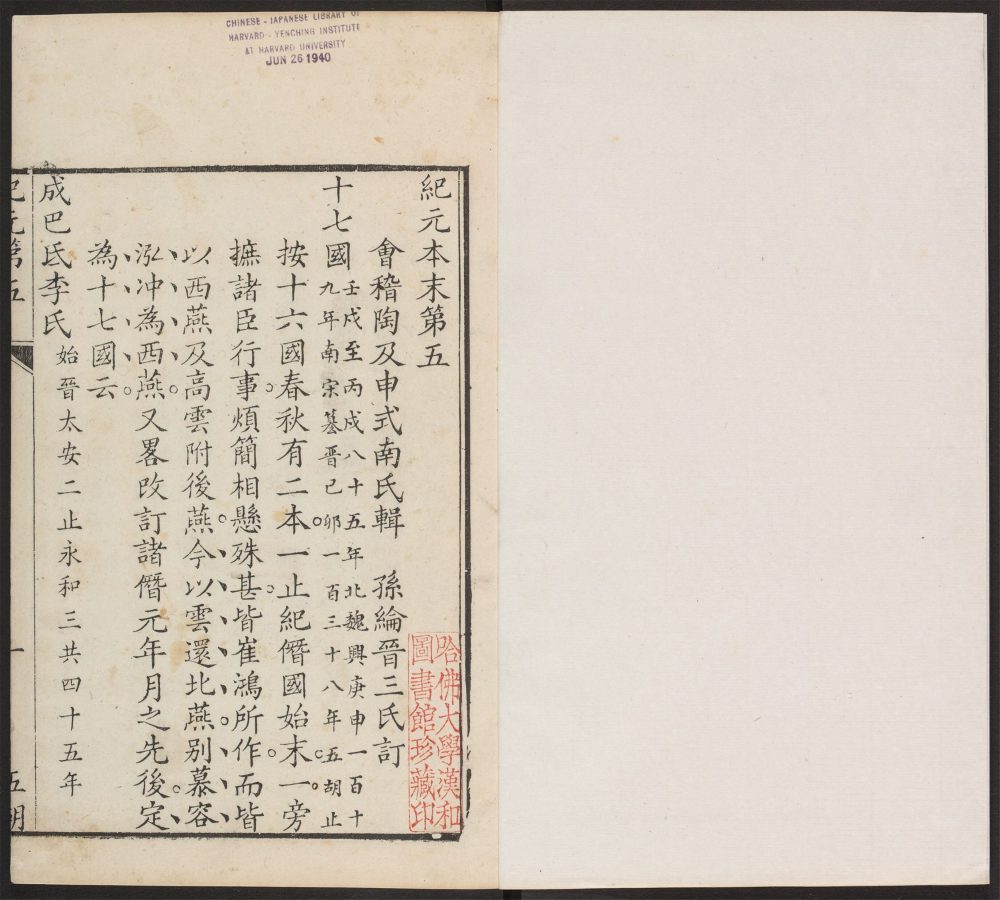 CHINESE - JAPANESE LIBRARY OF
HARVARD - YENCHING INSTITUTE
AT HARVARD UNIVERSITY
JUN 26 1940
紀元本末第五
會稽陶及申式南氏輯 孫綸晉三氏訂
十七國壬戌至丙戌八十五年北魏興庚申一百十
九年南宋篡晉己卯一百三十八年五胡止
按十六國春秋有二本一止紀僭國始末一旁
摭諸臣行事煩簡相懸殊甚皆崔鴻所作而皆
以西燕及高雲附後燕今以雲還北燕别慕容
泓冲為西燕又畧改訂諸僭元年月之先後定
為十七國云
成巴氏李氏始晉太安二止永和三共四十五年
紀元第五 一 五胡
哈佛大學漢和
圖書館珍藏印